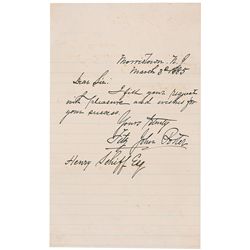 Morristown N. J
March 3d 1885
Dear Sir.
I fill your request
with pleasure and wishes for
your success.
Yours truly
Fitz John Porter
Henry Schiff Esq